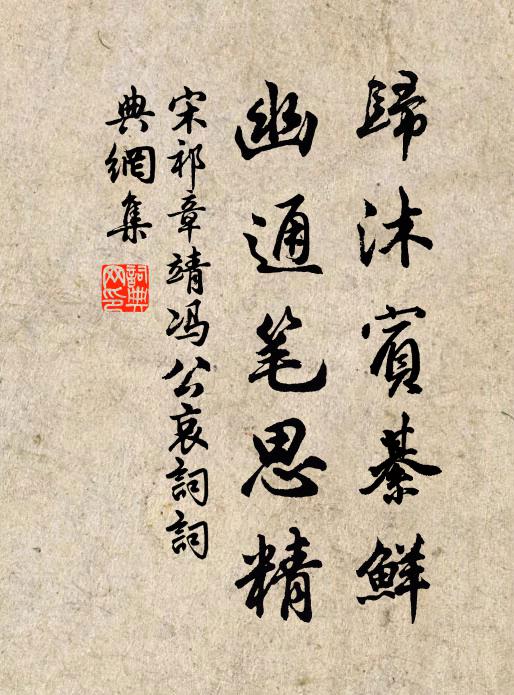 歸沐賓綦鮮
幽通笔思精
宋祁章靖冯公哀詞詞
典網集
詞典網印